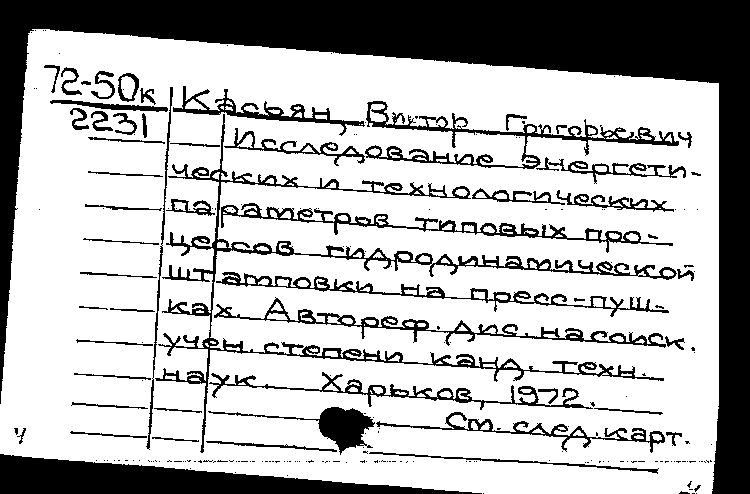 72-50к
2231
Касьян, Виктор Григорьевич
Исследование энергети-
ческих и технологических
параметров типовых про-
цессов гидродинамической
штамповки на пресс-пуш-
ках. Автореф. дис. на соиск.
учен. степени канд. техн.
наук. Харьков, 1972.
См. след. карт.